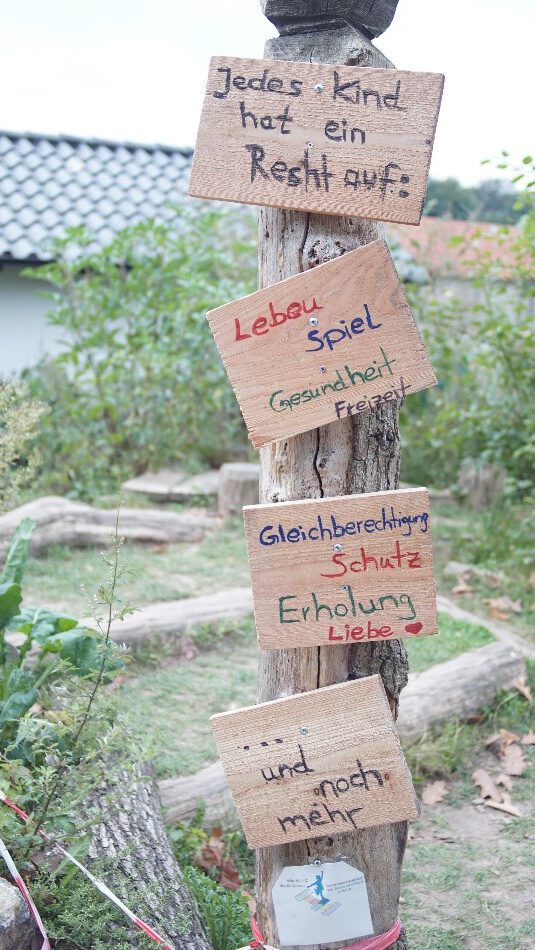 Jedes Kind
hat ein
Resht auf:
Lebeu
Spiel
Gesundheit
Freizeit
Gleichberechtigung
Schutz
Erholung
Liebe ♥
...
und
noch
mehr